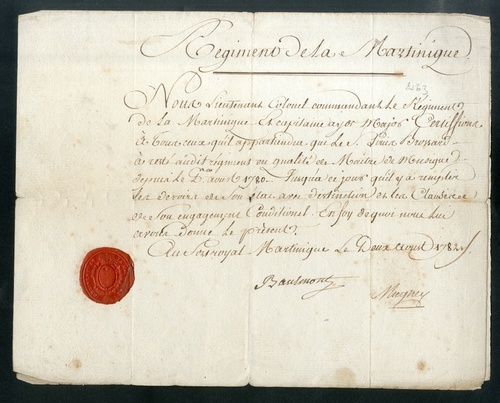 Regiment de la Martinique.
Nous Lieutenant Colonel commandant le Régiment
de la Martinique Et capitaine ayde Major Certiffions
à tous ceux qu'il appartiendra que le S. Louis
à resté audit régiment en qualité de Maitre de Musique
depuis le Aout 1780. Jusqu'a ce jour, qu'il y a remplit
les devoirs de son Etat avec distinction et les Clauses
de son engagement Conditionel. En foy de quoi nous lui
avons donné le présent.
Au fort royal Martinique Le Deux aout 1782.
Baulmont